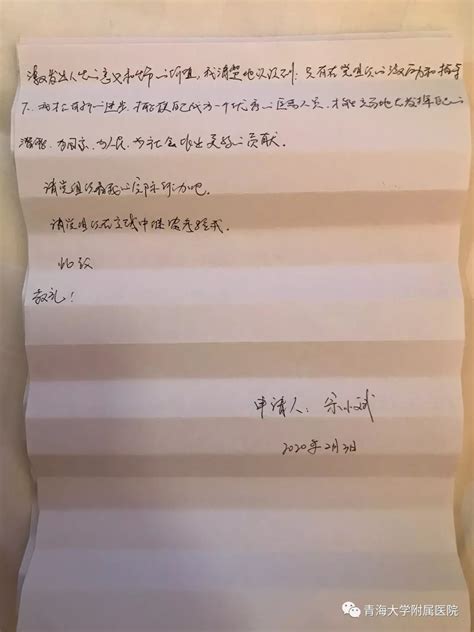 激发出人生的意义和生命的价值,我清楚地认识到:只有在党组织的激励和指导
下,我才会有新的进步,才能使自己成为一个优秀的医务人员,才能更好地去发挥自己的
潜能,为国家,为人民,为社会作出更多的贡献。
请党组织看我的实际行动吧。
请党组织在实践中继续考验我。
此致
敬礼!
申请人:宋小斌
2020年2月3日
青海大学附属医院